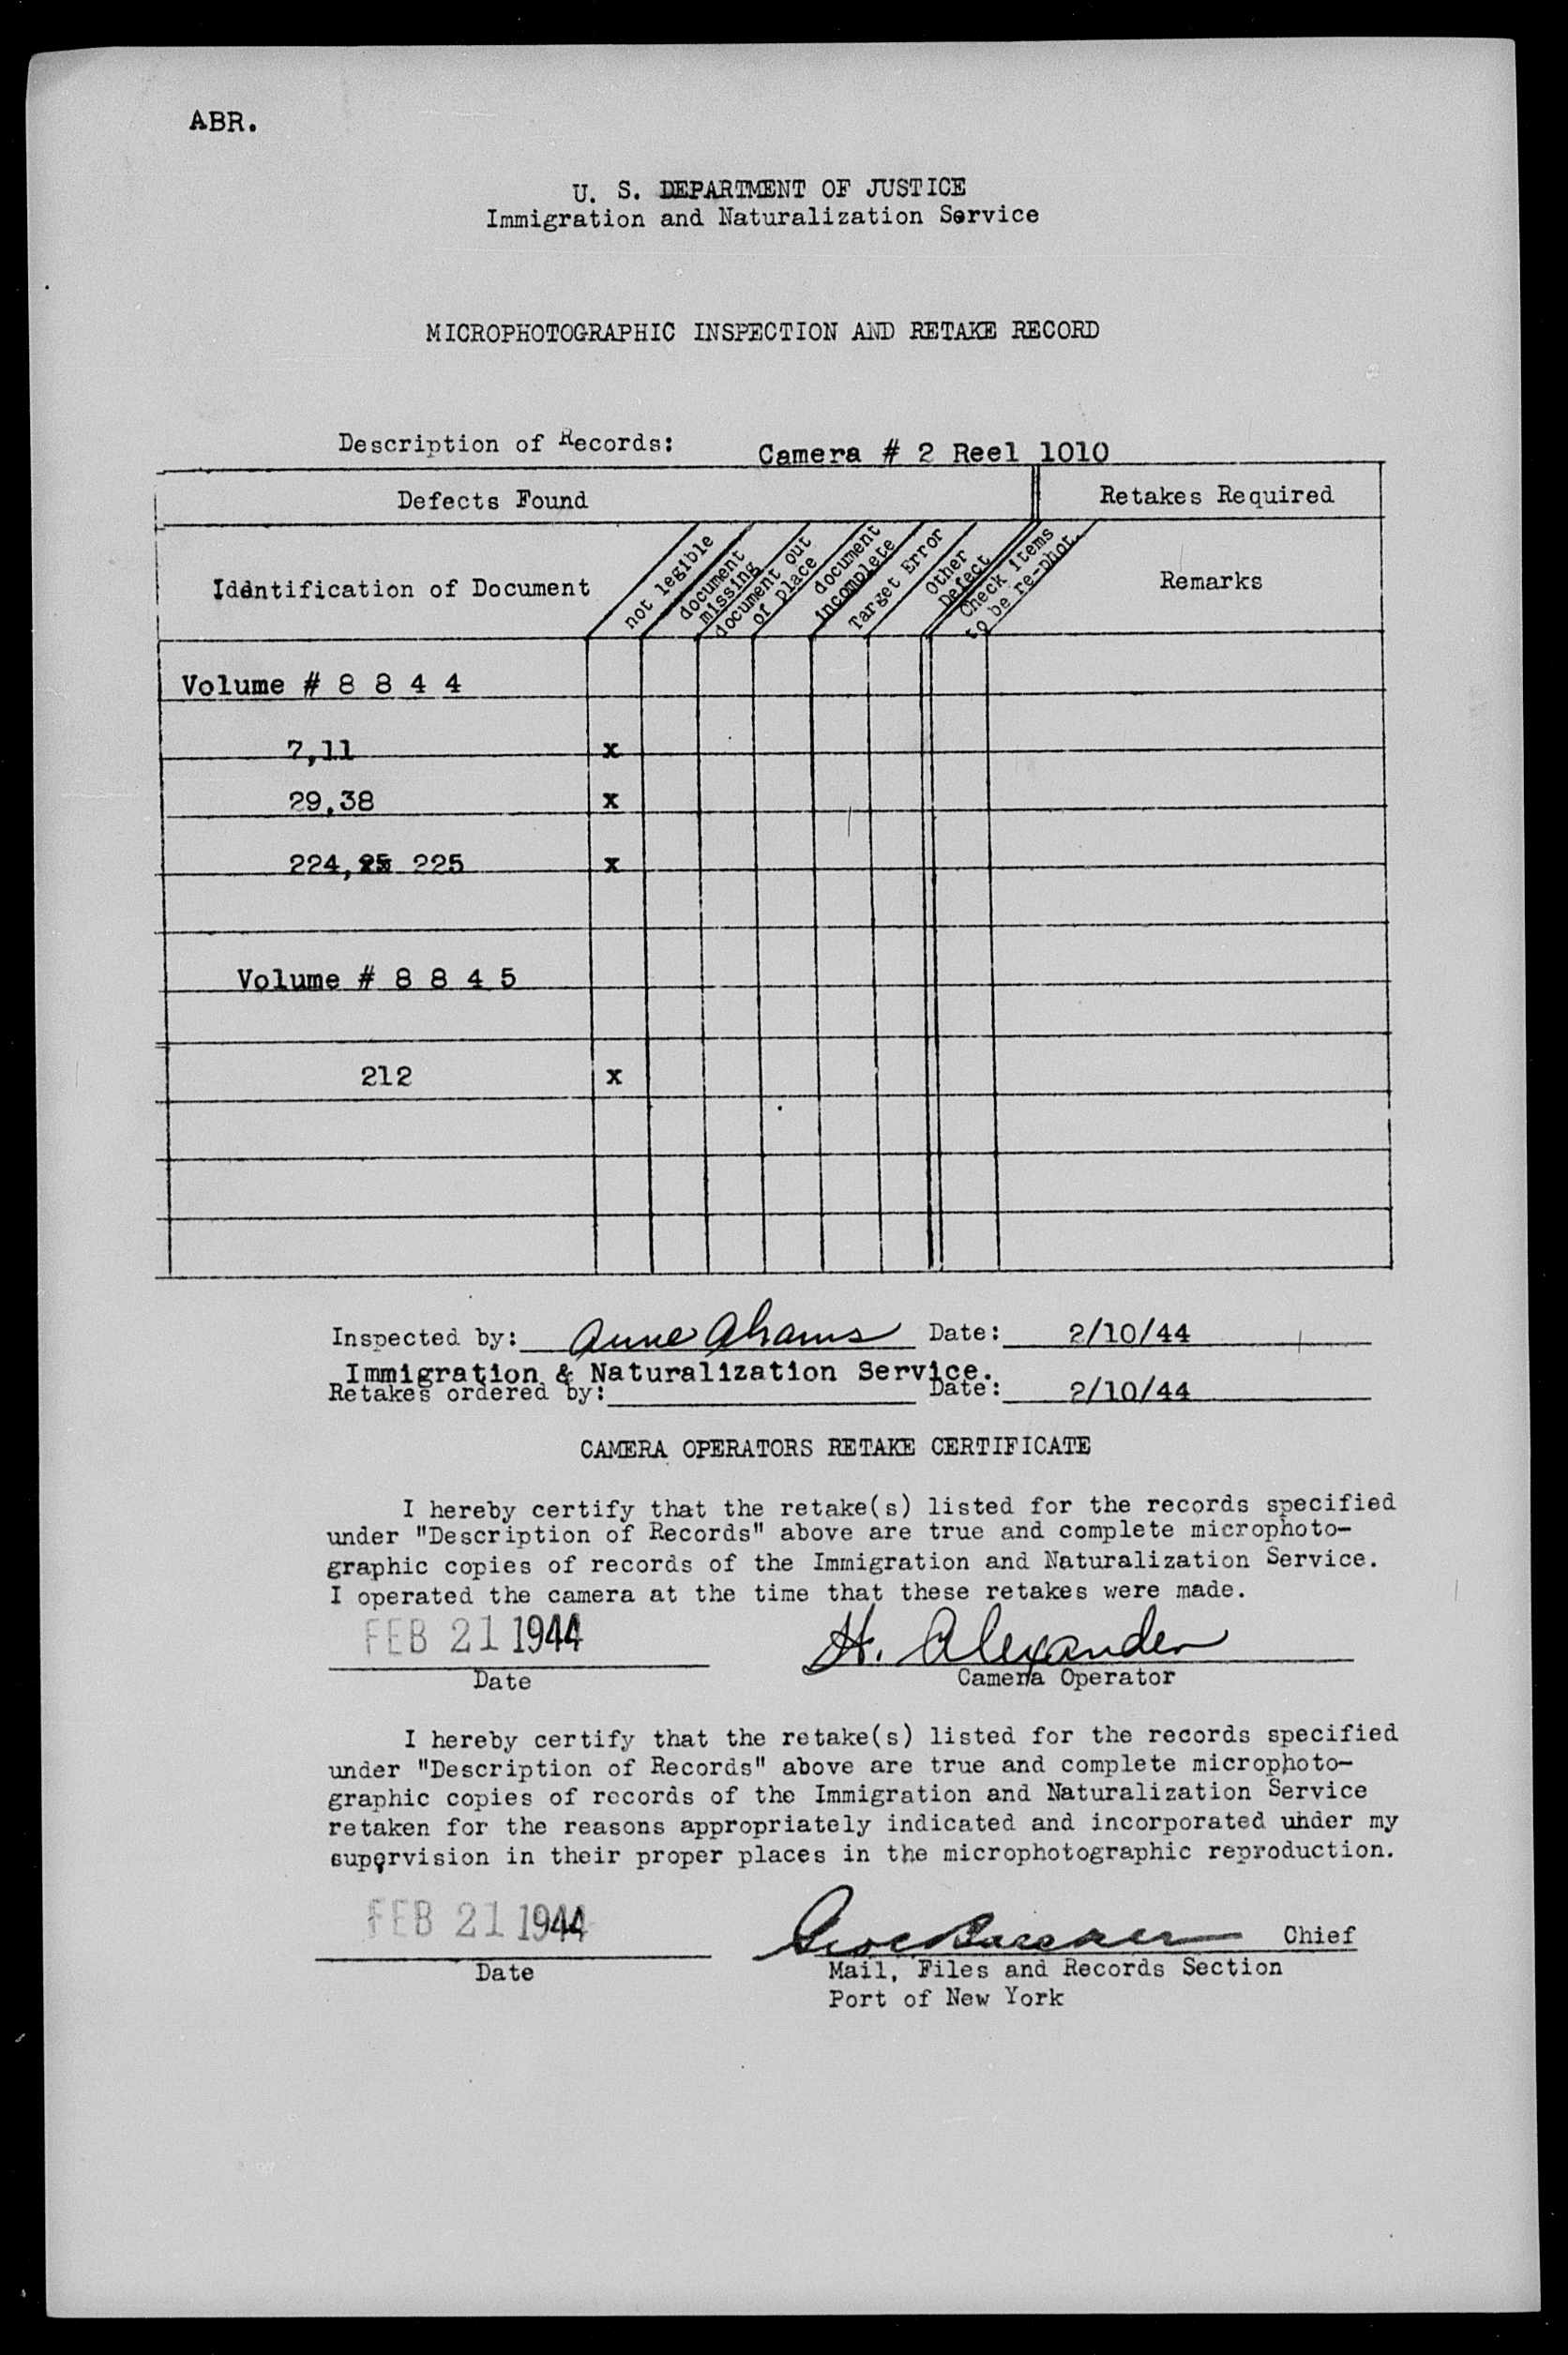 ABR.
U. S. DEPARTMENT OF JUSTICE
Immigration and Naturalization Service
MICROPHOTOGRAPHIC INSPECTION AND RETAKE RECORD
Description of Records: Camera # 2 Reel 1010
Defects Found
Retakes Required
Identification of Document
not legible
document missing
document out of place
document incomplete
Target Error
Other Defect
Check items to be re-phot.
Remarks
Volume # 8 8 4 4
7,11 x
29,38 x
224, 225 x
Volume # 8 8 4 5
212 x
Inspected by: Anne Date: 2/10/44
Immigration & Naturalization Service.
Retakes ordered by: Date: 2/10/44
CAMERA OPERATORS RETAKE CERTIFICATE
I hereby certify that the retake(s) listed for the records specified
under "Description of Records" above are true and complete microphoto-
graphic copies of records of the Immigration and Naturalization Service.
I operated the camera at the time that these retakes were made.
FEB 21 1944
H. Alexander
Date
Camera Operator
I hereby certify that the retake(s) listed for the records specified
under "Description of Records" above are true and complete microphoto-
graphic copies of records of the Immigration and Naturalization Service
retaken for the reasons appropriately indicated and incorporated under my
supervision in their proper places in the microphotographic reproduction.
FEB 21 1944
Chief
Date
Mail, Files and Records Section
Port of New York